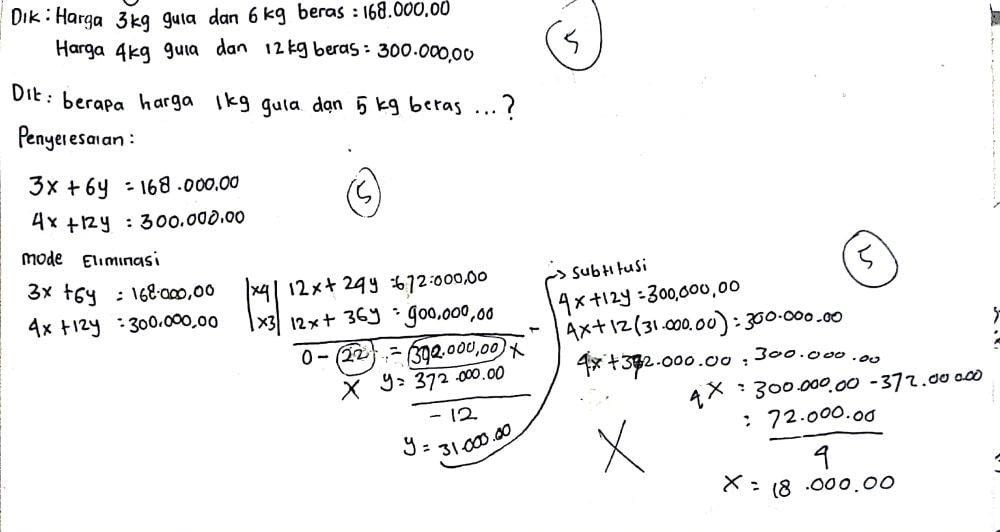 DIK : Harga 3kg gula dan 6 kg beras : 168.000,00
Harga 4kg gula dan 12 kg beras = 300.000,00
5
DIt : berapa harga 1kg gula dan 5 kg beras ... ?
Penyelesaian :
3x + 6y = 168.000,00
4x + 12y : 300.000.00
5
mode Eliminasi
3x + 6y : 168.000,00 |x4| 12x + 24y = 672.000,00
4x + 12y = 300.000,00 |x3| 12x + 36y = 900.000,00 -
0 - 22 = 392.000,00 x
x y = 372.000.00
- 12
y = 31.000.00
→ subtitusi
5
4x + 12y = 300,000,00
4x + 12 (31.000.00) : 300.000.00
4x + 372.000.00 : 300.000.00
4x : 300.000.00 - 372.000.00
: 72.000.00
4
X
x = 18.000.00